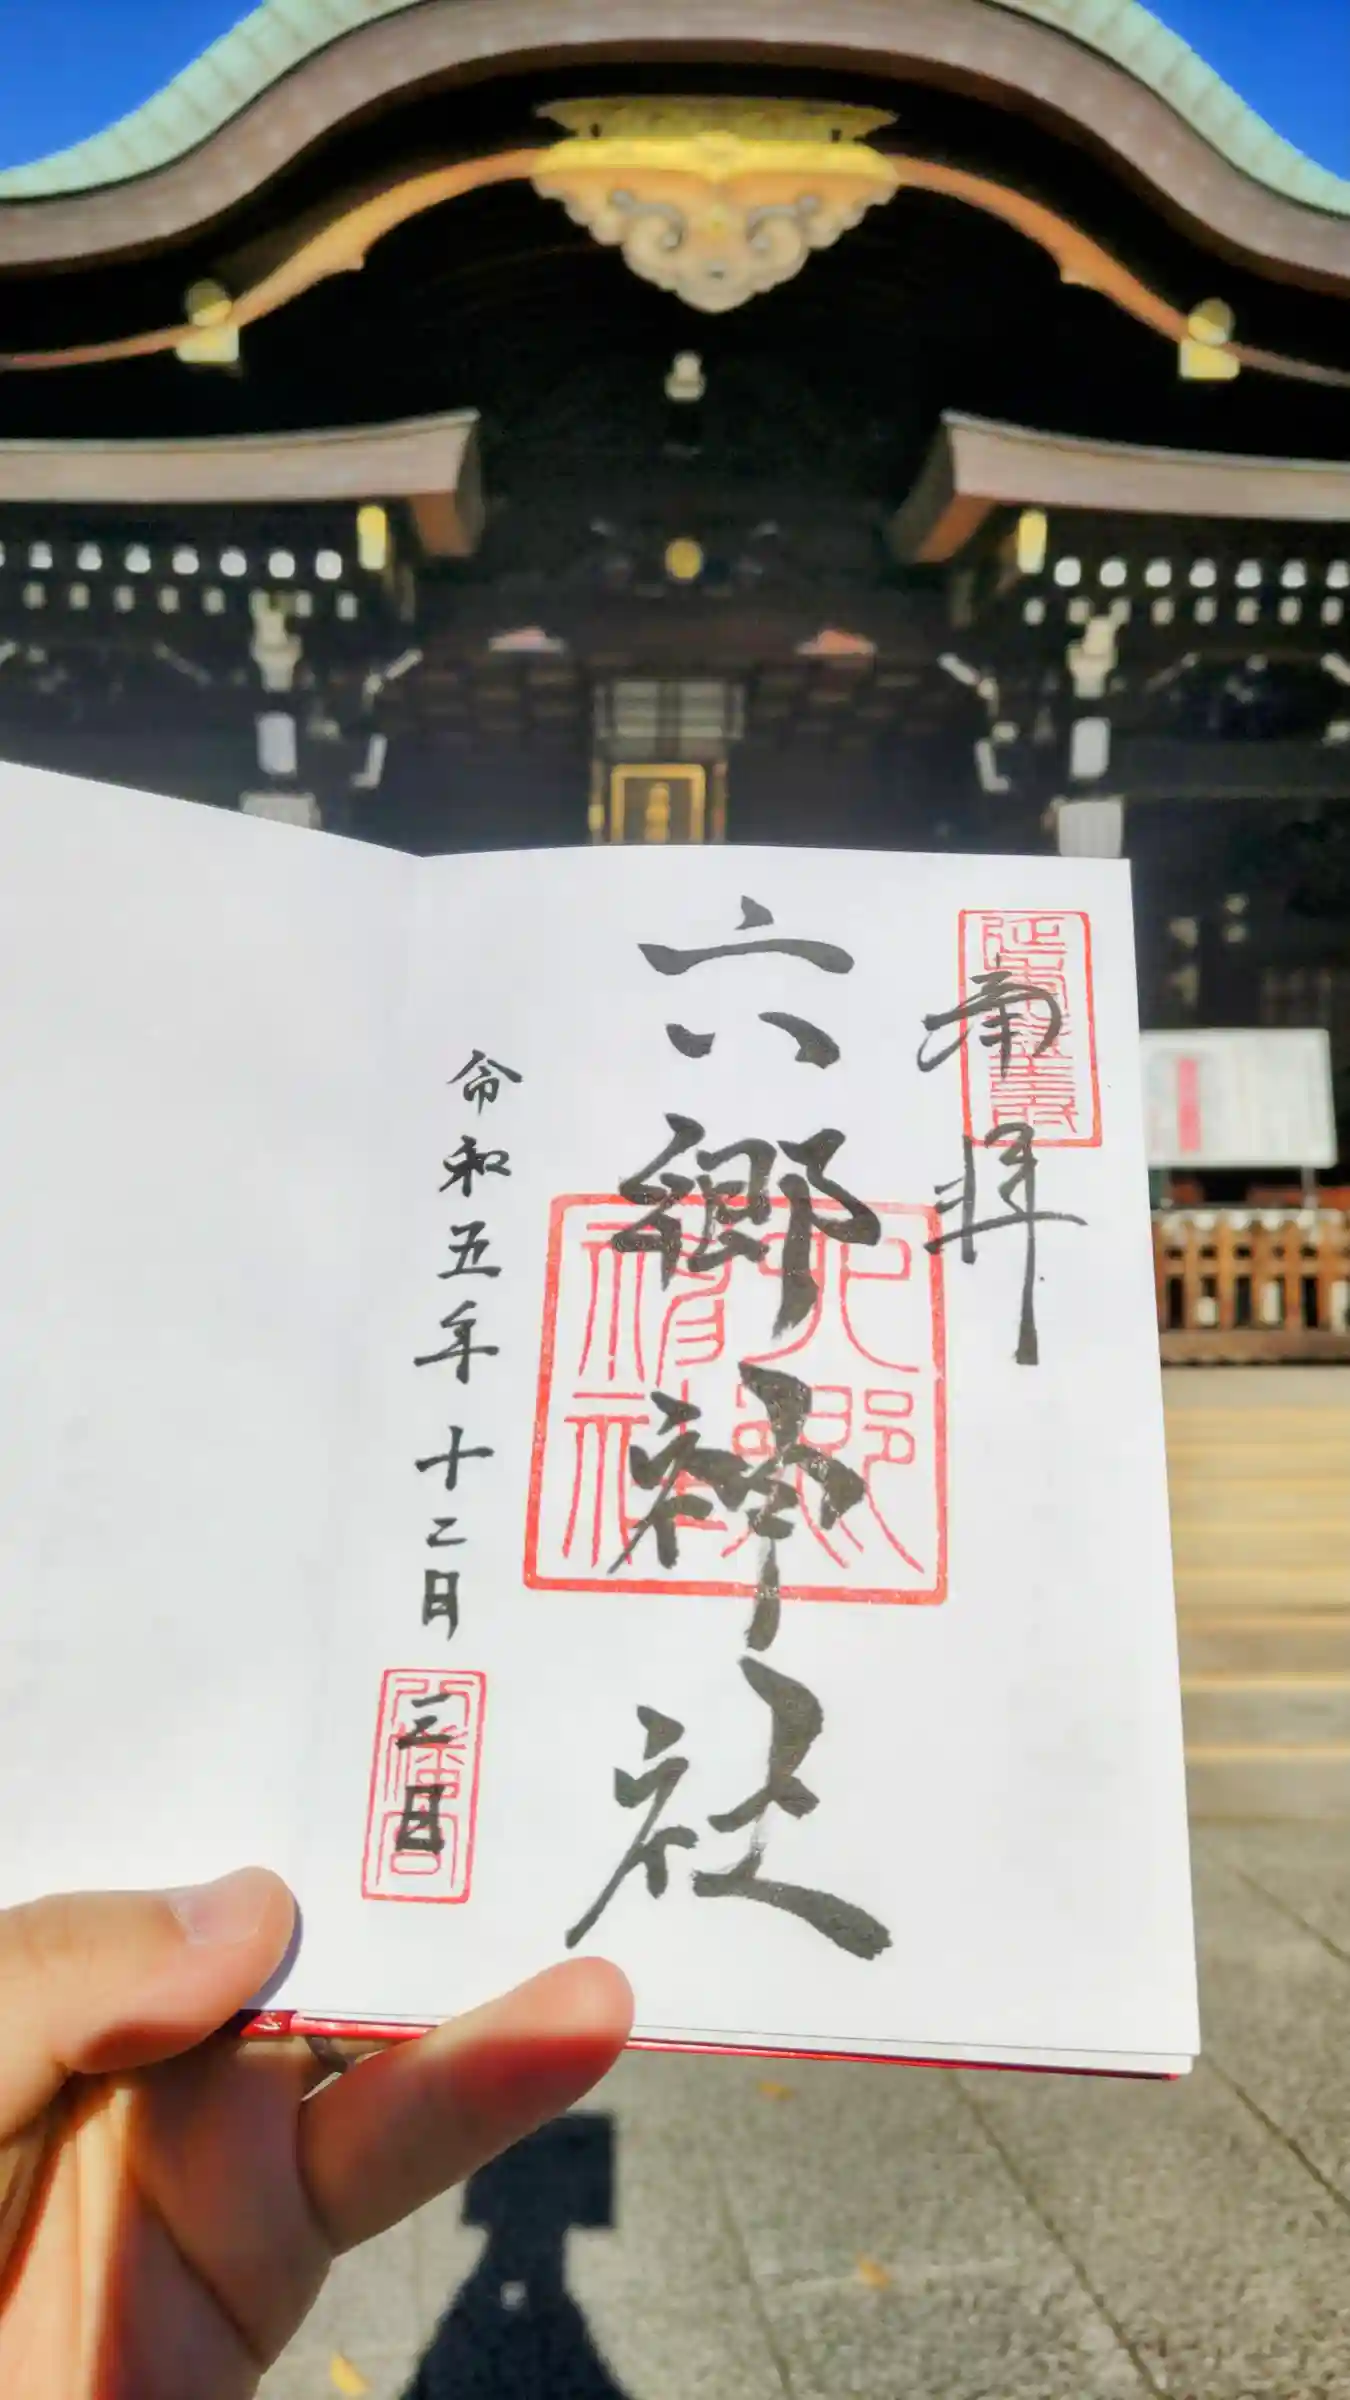 奉拝
六郷神社
六郷神社
令和五年十二月三日
八幡宮